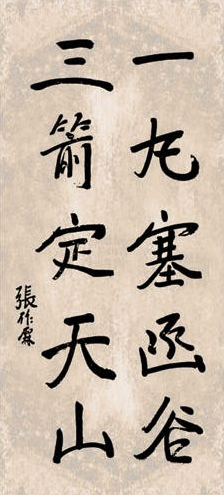 一丸塞函谷
三箭定天山
張作霖